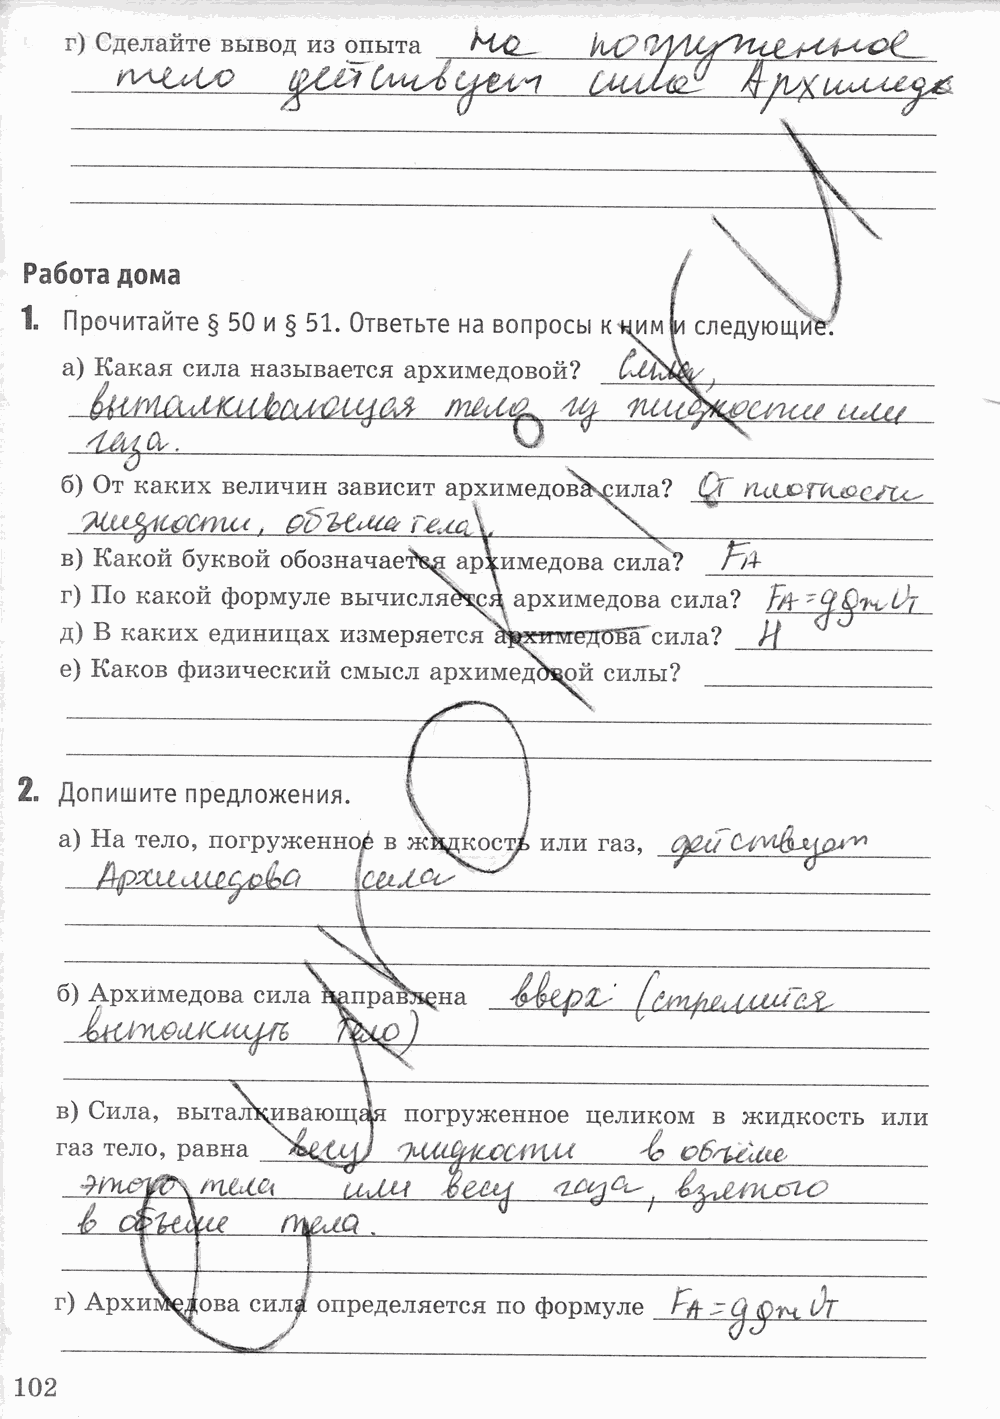 г) Сделайте вывод из опыта на погруженное
тело действует сила Архимеда
Работа дома
1. Прочитайте § 50 и § 51. Ответьте на вопросы к ним и следующие.
а) Какая сила называется архимедовой? Сила,
выталкивающая тело из жидкости или
газа.
б) От каких величин зависит архимедова сила? От плотности
жидкости, объема тела.
в) Какой буквой обозначается архимедова сила? FA
г) По какой формуле вычисляется архимедова сила? FA = gρжVт
д) В каких единицах измеряется архимедова сила? Н
е) Каков физический смысл архимедовой силы?
2. Допишите предложения.
а) На тело, погруженное в жидкость или газ, действует
Архимедова сила
б) Архимедова сила направлена вверх (стремится
вытолкнуть тело)
в) Сила, выталкивающая погруженное целиком в жидкость или
газ тело, равна весу жидкости в объёме
этого тела или весу газа, взятого
в объеме тела.
г) Архимедова сила определяется по формуле FA = gρжVт
102